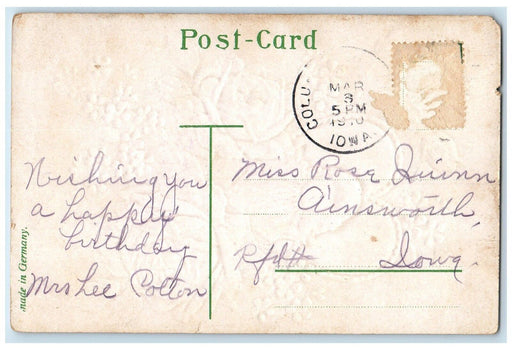 Post-Card
COLU
MAR
8
5 PM
1910
IOWA
Wishing you
a happy
birthday
Mrs Lee Cotton
made in Germany.
Miss Rose Quinn
Ainsworth,
Rfd#
Iowa.